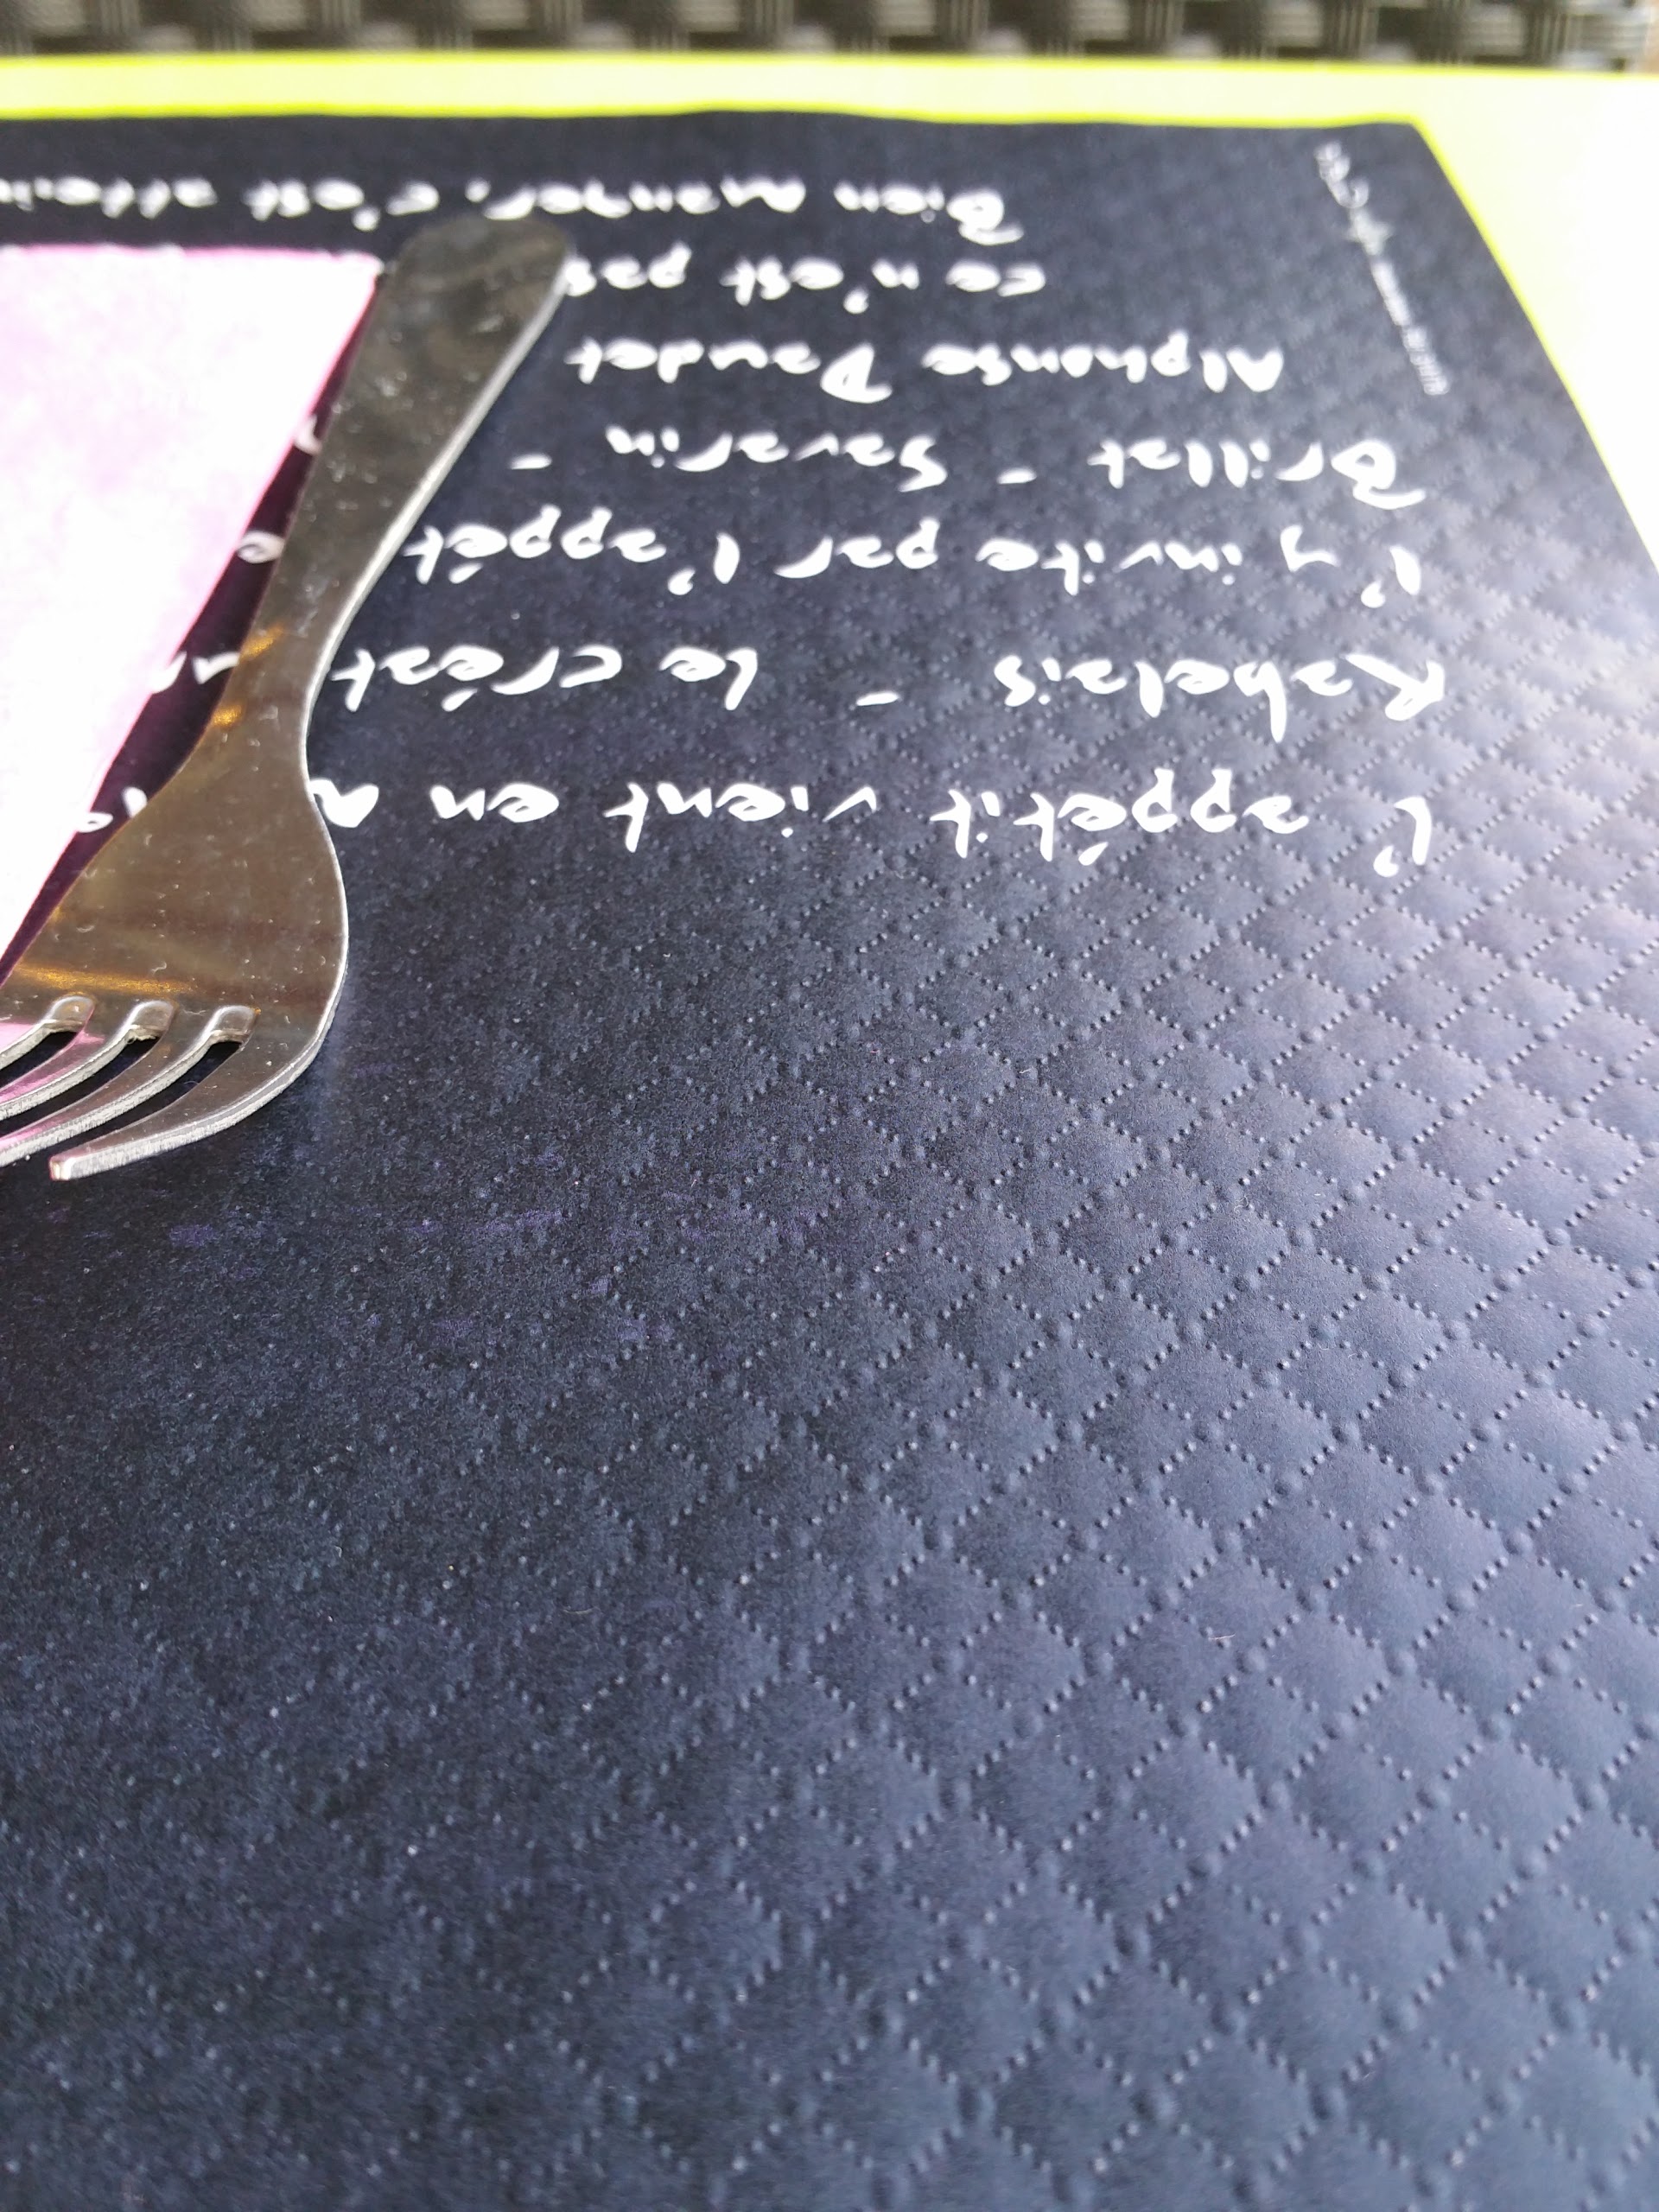 L'appétit vient en
Rabelais - Le créat
l'y invite par l'appét
Brillat - Savarin -
Alphonse Daudet
ce n'est pas
Bien manger, c'est attein